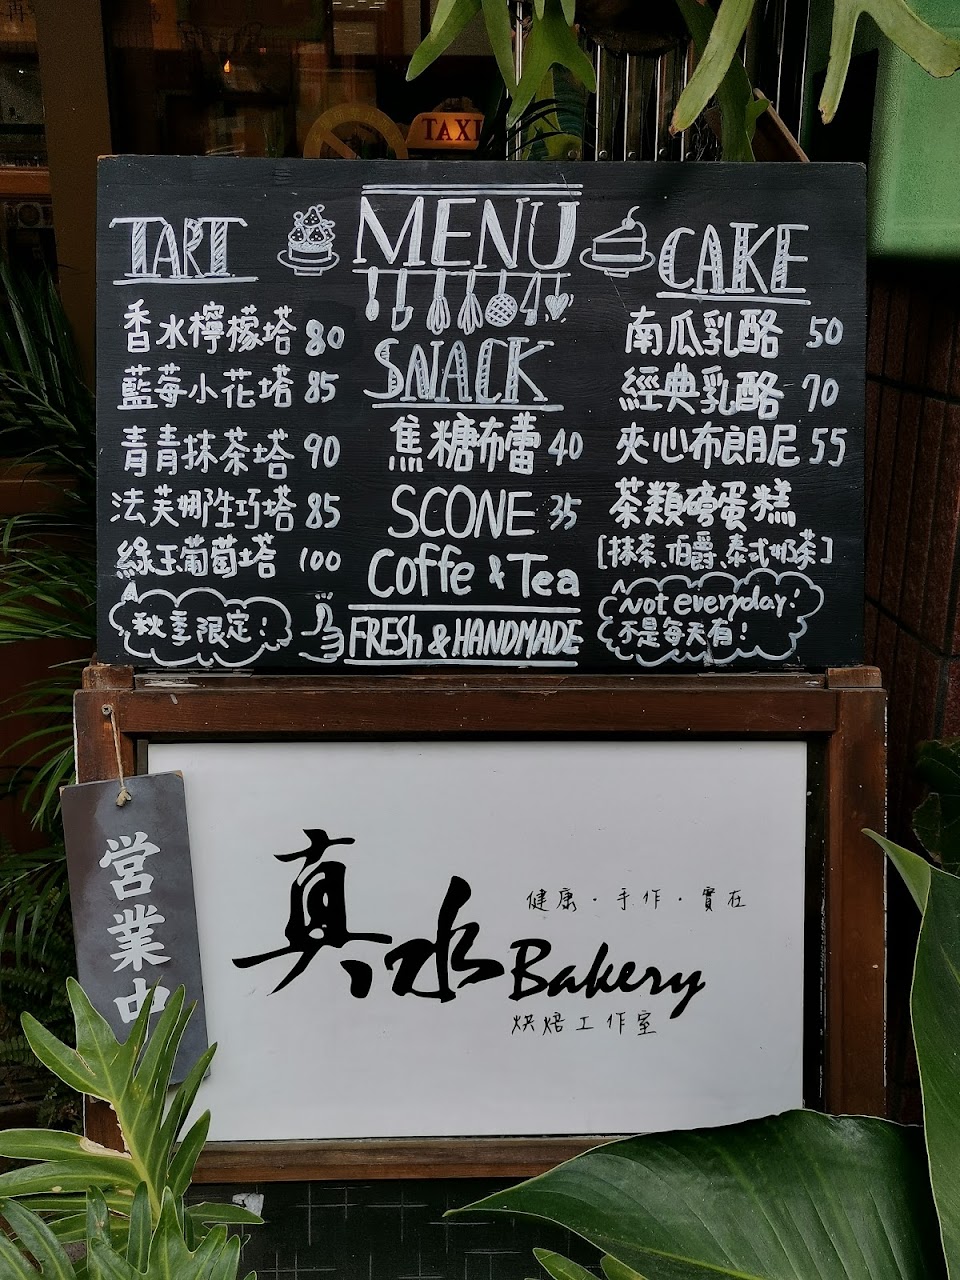 TAXI
MENU
TART
香水檸檬塔 80
藍莓小花塔 85
青青抹茶塔 90
法芙娜生巧塔 85
綠玉葡萄塔 100
秋季限定!
SNACK
焦糖布蕾 40
SCONE 35
Coffe & Tea
FRESh & HANDMADE
CAKE
南瓜乳酪 50
經典乳酪 70
夾心布朗尼 55
茶類磅蛋糕
[抹茶、伯爵、泰式奶茶]
Not everyday!
不是每天有!
営業中
真水 Bakery
健康·手作·實在
烘焙工作室